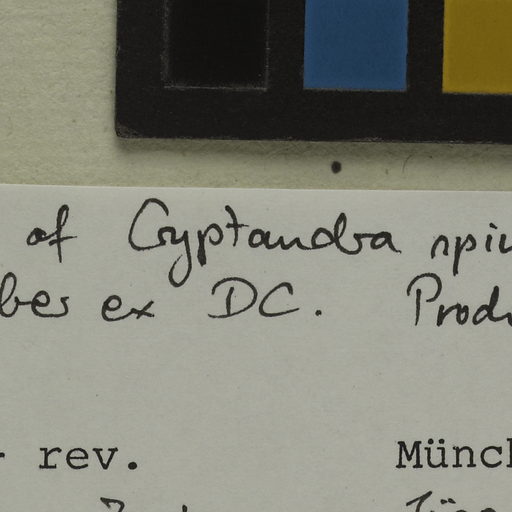 of Cryptandra spin
ber ex DC. Prodr
rev. Münch